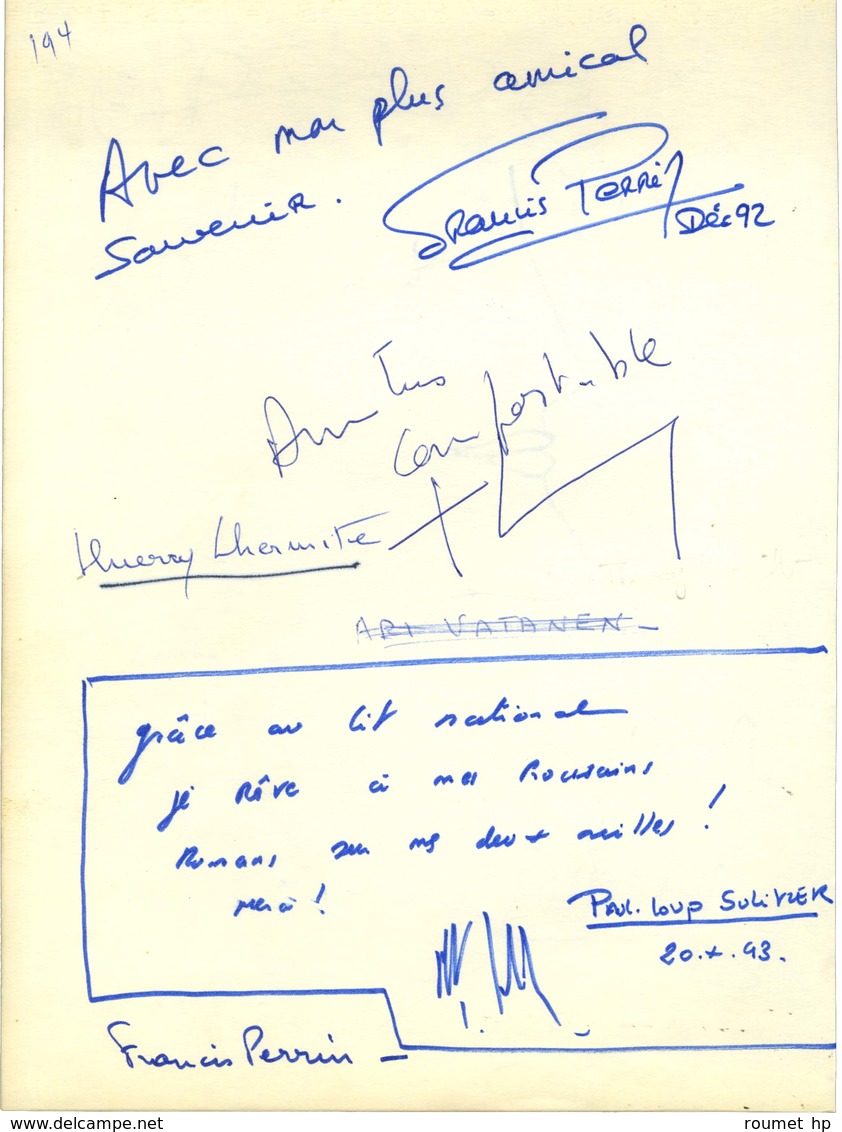 194
Avec mon plus amical
Souvenir. Francis Perrin
Déc 92
Très
confortable
Thierry Lhermitte
ARI VATANEN
grâce au lit national
je rêve à mes prochains
Romans sur mes deux oreilles !
merci !
PAUL. LOUP SULITZER
20.X.93.
Francis Perrin
www.delcampe.net
roumet hp